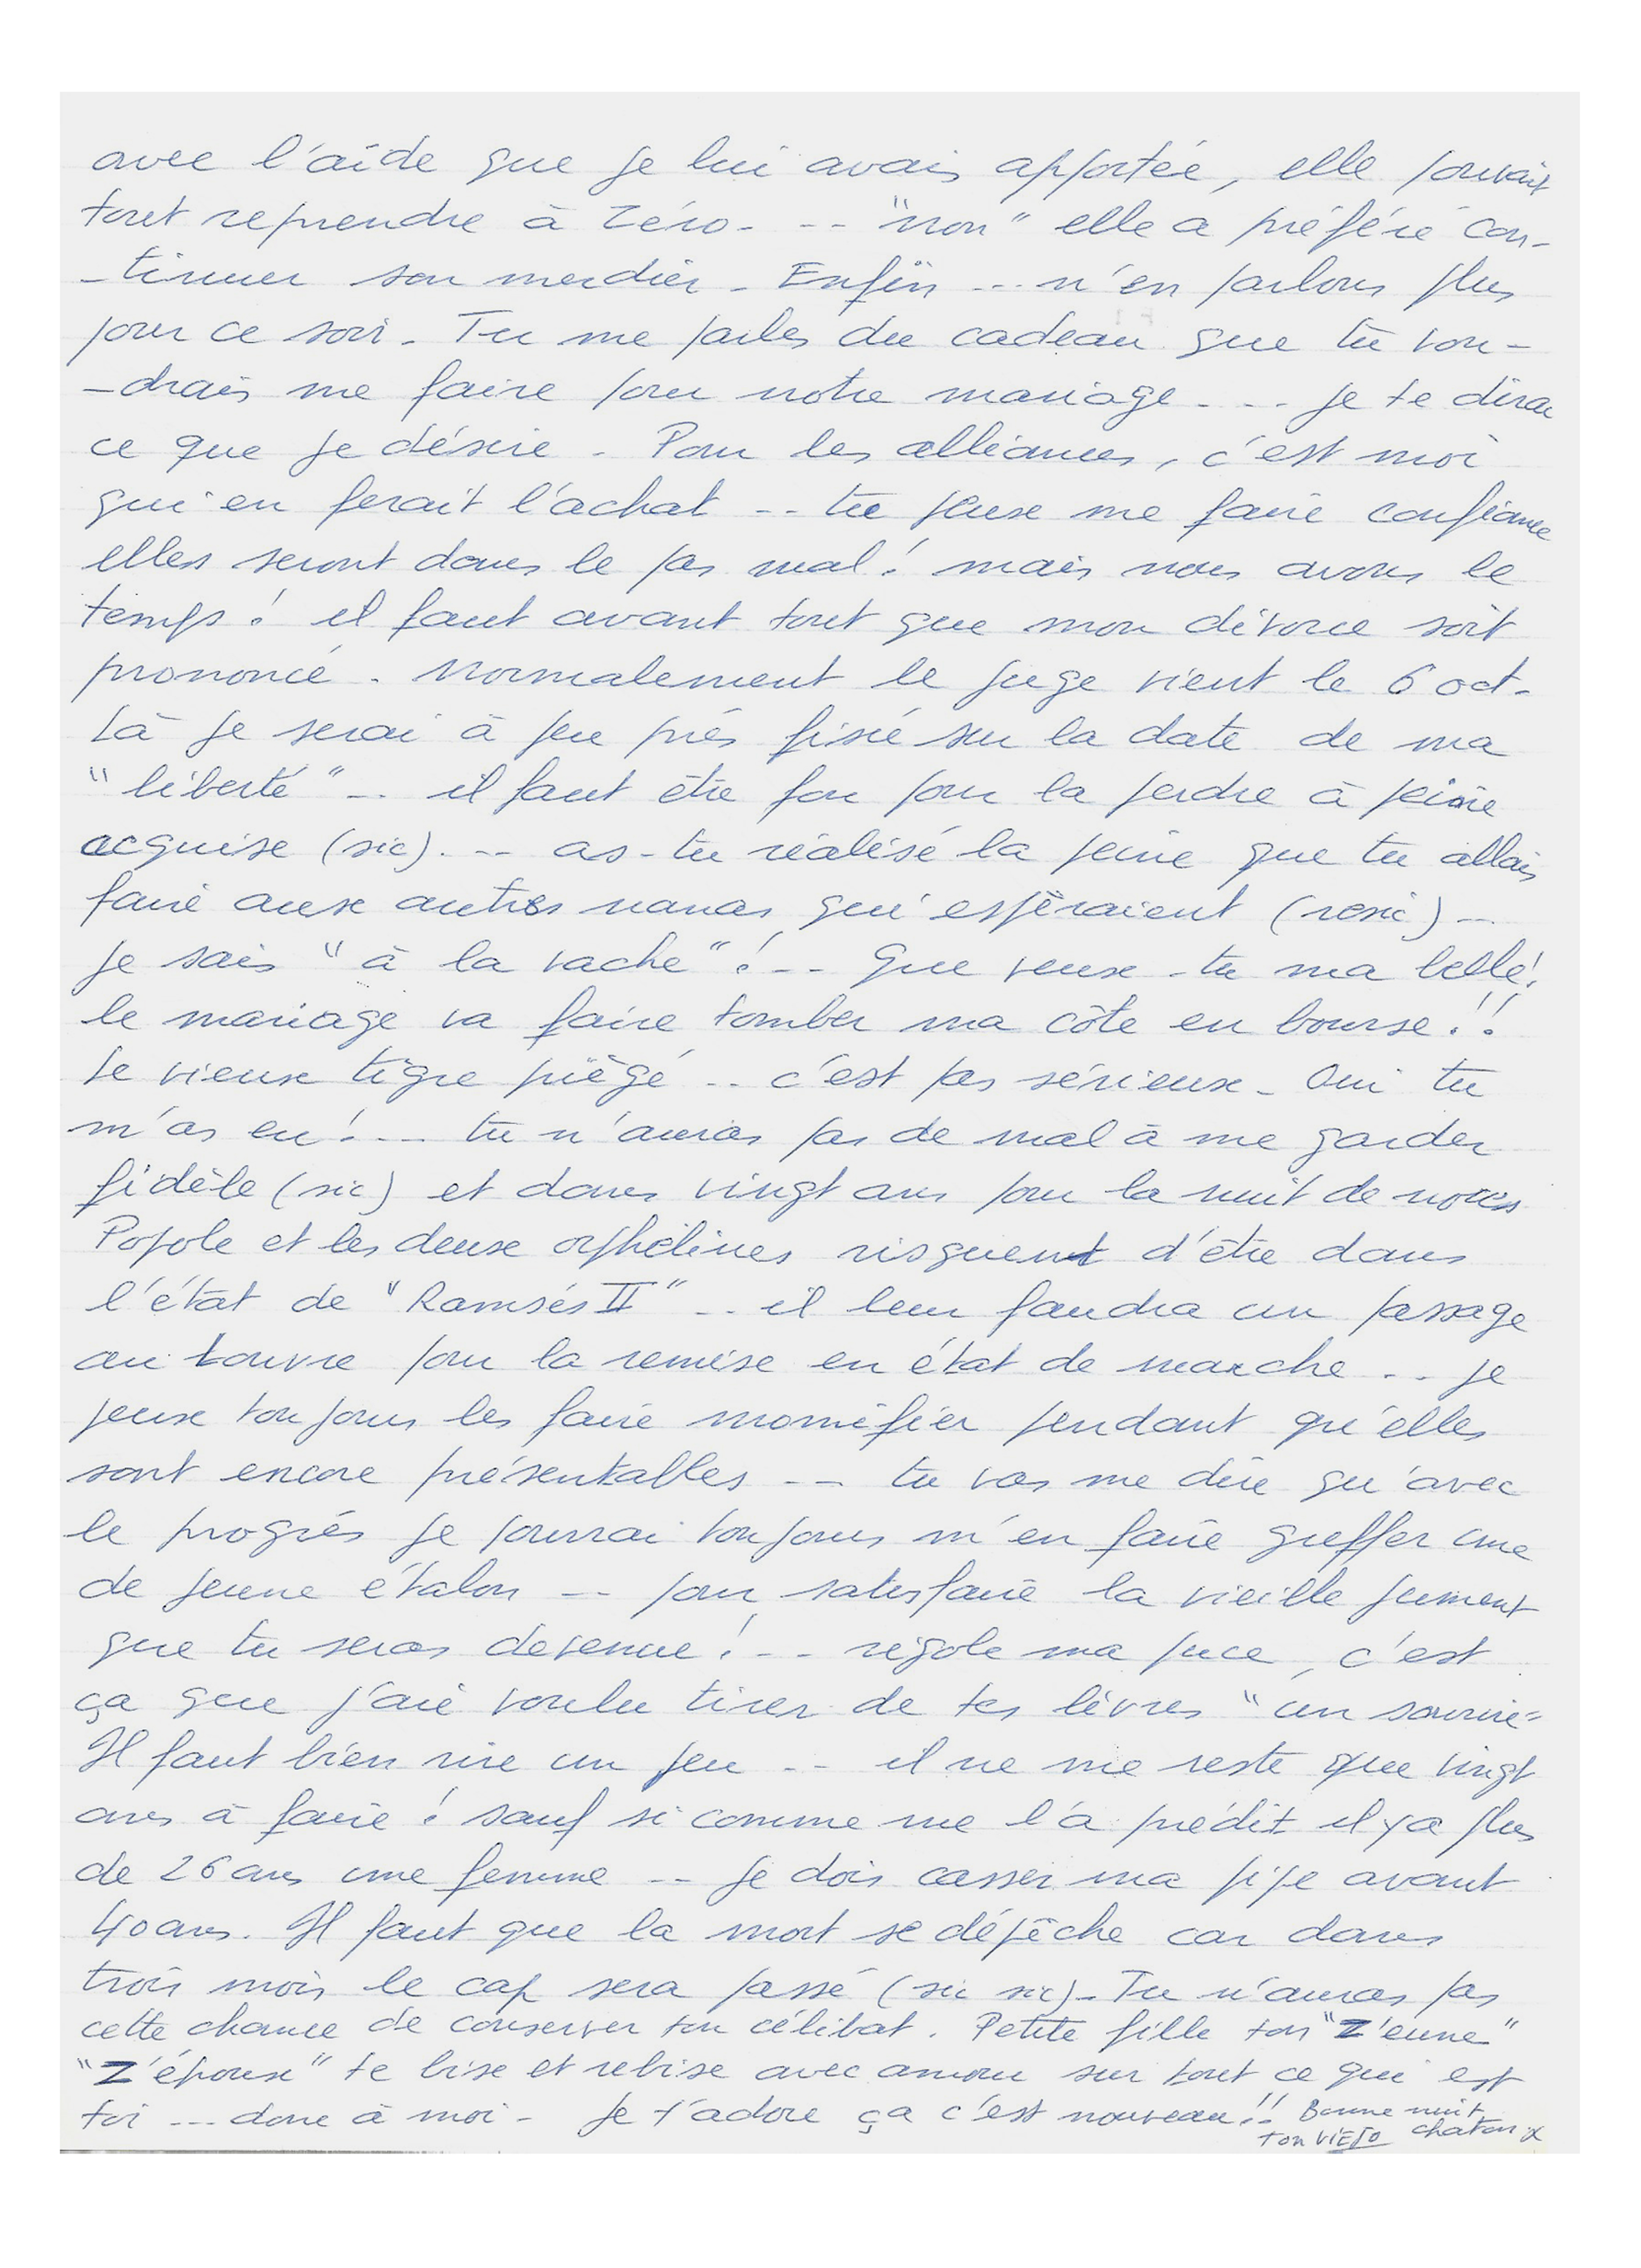 avec l'aide que je lui avais apportée, elle pouvait
tout reprendre à zéro - -- "non" elle a préféré con-
-tinuer son merdier - Enfin --- n'en parlons plus
pour ce soir - Tu me parles du cadeau que tu vou-
-drais me faire pour notre mariage - -- je te dirai
ce que je désire - Pour les alliances, c'est moi
qui en ferait l'achat -- tu peux me faire confiance
elles seront dans le pas mal! mais nous avons le
temps! il faut avant tout que mon divorce soit
prononcé - Normalement le juge vient le 6 oct -
Là je serai à peu près fixé sur la date de ma
"liberté" -- il faut être fou pour la perdre à peine
acquise (sic) - -- as-tu réalisé la peine que tu allais
faire aux autres nanas qui espèraient (resic) --
je sais "à la vache"! -- Que veux-tu ma belle!
le mariage va faire tomber ma côte en bourse!!
Le vieux tigre piègé -- c'est pas sérieux - Oui tu
m'as eu! --- tu n'auras pas de mal à me garder
fidèle (sic) et dans vingt ans pour la nuit de noces
Popole et les deux orphelines risquent d'être dans
l'état de "Ramsés II" -- il leur faudra un passage
au Louvre pour la remise en état de marche .. je
peux toujours les faire momifier pendant qu'elles
sont encore présentables -- tu vas me dire qu'avec
le progrès je pourrai toujours m'en faire greffer une
de jeune étalon -- pour satisfaire la vieille jument
que tu seras devenue! -- rigole ma puce, c'est
ça que j'aie voulu tirer de tes lèvres "un sourire"
Il faut bien rire un peu -- il ne me reste que vingt
ans à faire! sauf si comme me l'a prédit il y a plus
de 26 ans une femme -- je dois casser ma pipe avant
40 ans. Il faut que la mort se dépêche car dans
trois mois le cap sera passé (sic sic) - Tu n'auras pas
cette chance de conserver ton célibat. Petite fille ton "Z'eune"
"Z'époux" te bise et rebise avec amour sur tout ce qui est
toi --- donc à moi - Je t'adore ça c'est nouveau!! Bonne nuit
ton VIEJO chaton x